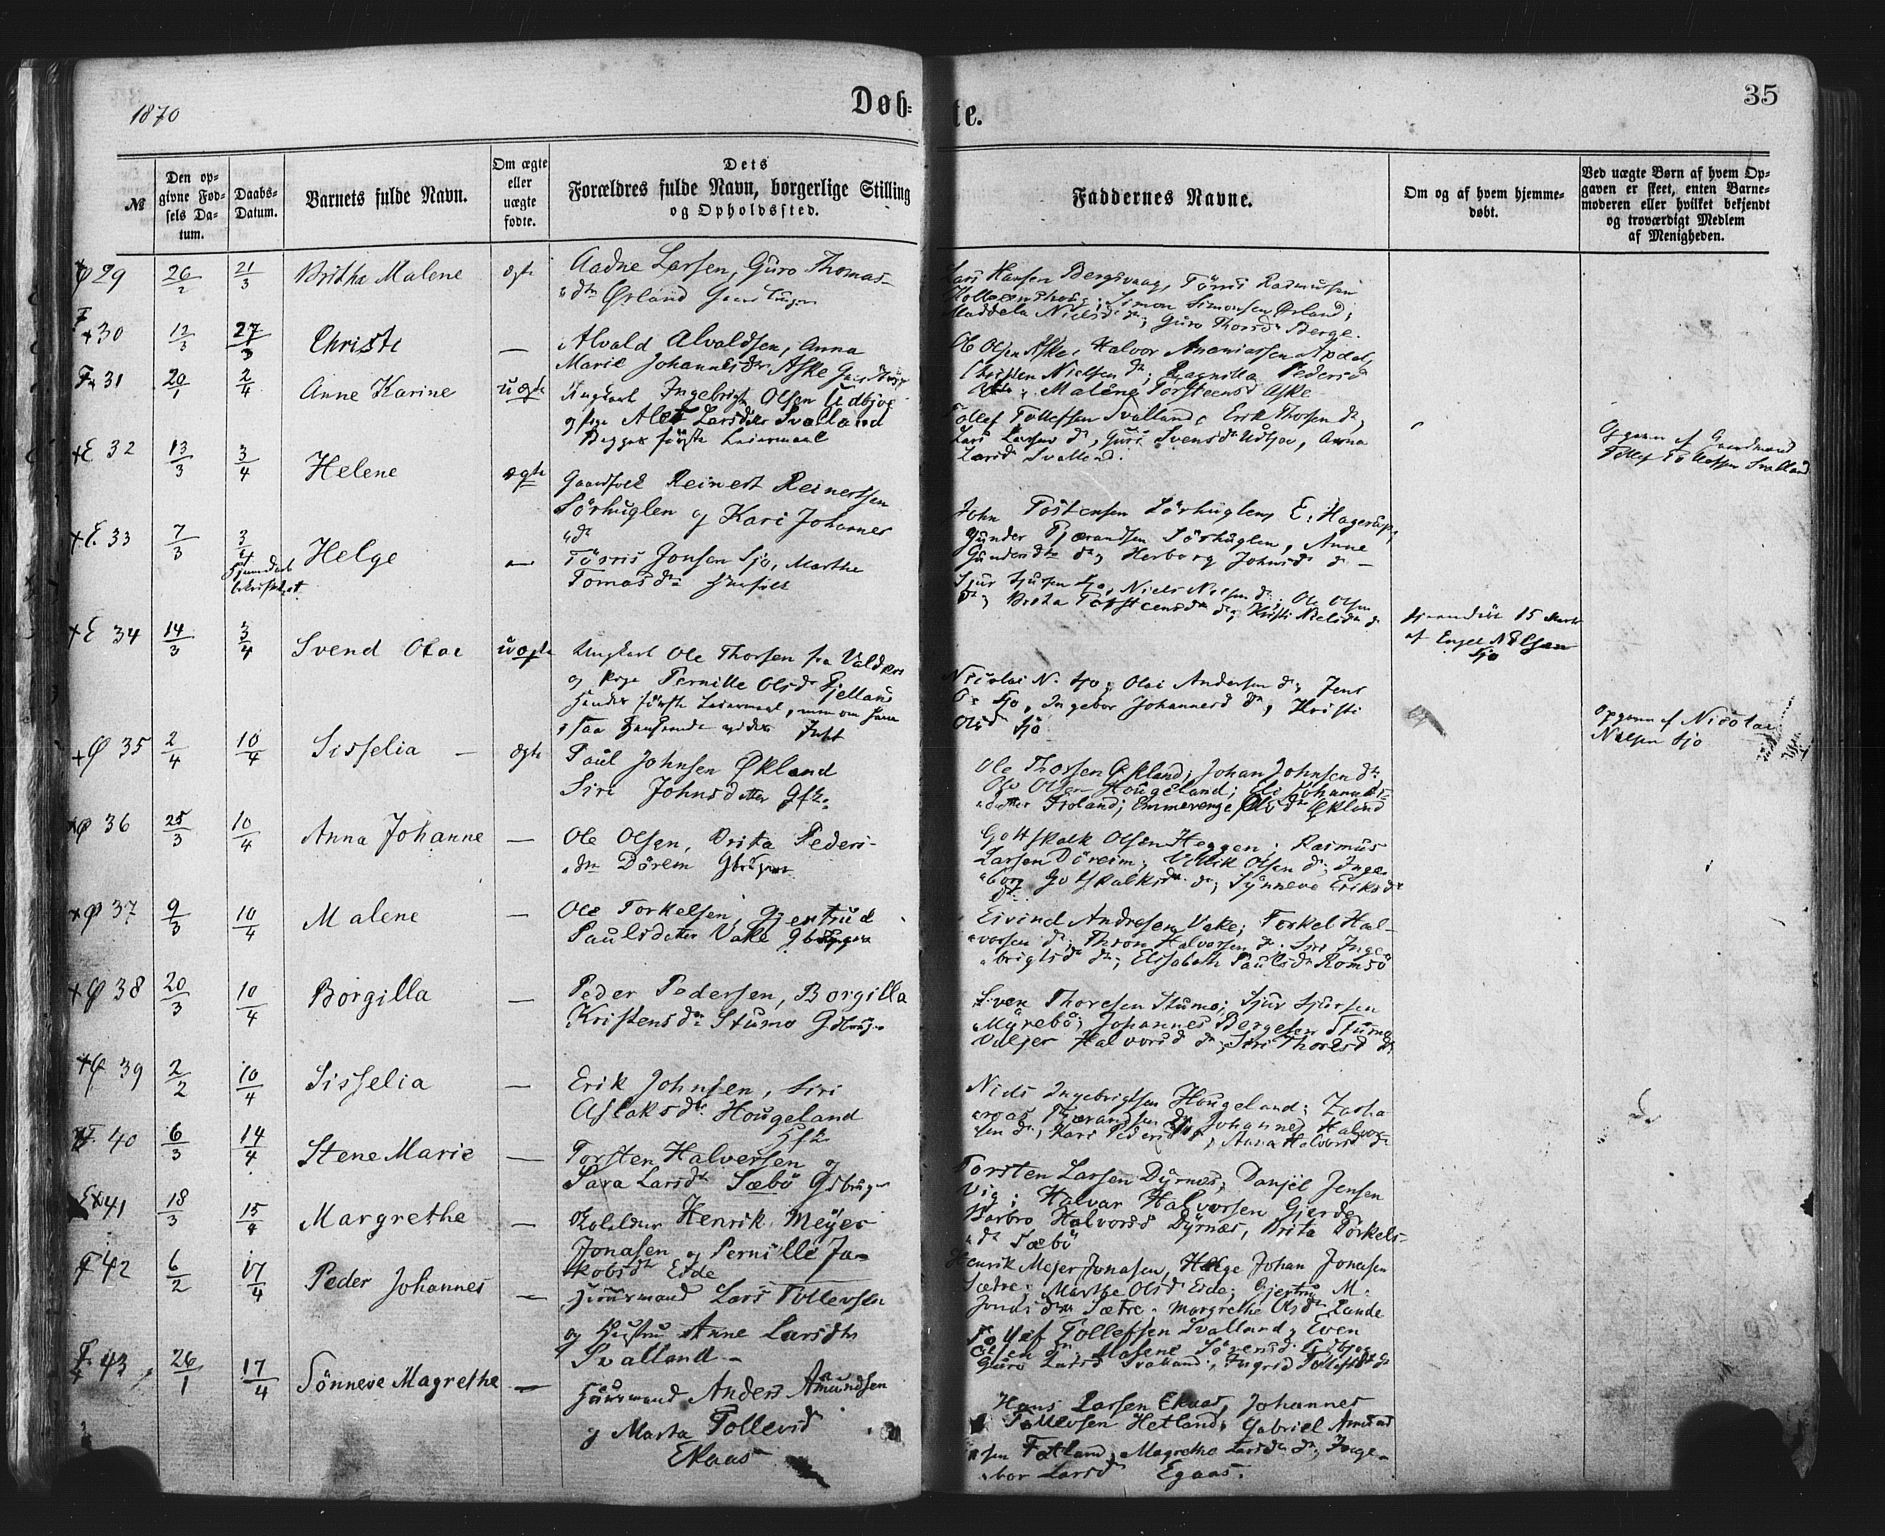 1870
Døb-
te.
35
№
Den op-
givne Fød-
sels Da-
tum.
Daabs-
Datum.
Barnets fulde Navn.
Om ægte
eller
uægte
fødte.
Dets
Forældres fulde Navn, borgerlige Stilling
og Opholdssted.
Faddernes Navne.
Om og af hvem hjemme-
døbt.
Ved uægte Børn af hvem Op-
gaven er skeet, enten Barne-
moderen eller hvilket bekjendt
og troværdigt Medlem
af Menigheden.
29 26/2 21/3 Britha Malene ægte Aadne Larsen, Guro Thomas-
dtr Ørland
Lars Hansen Bergsvaag, Törris Rasmussen
Simon Simonsen Ørland;
Maddela Nielsdtr; Guro Thorsdtr Berge.
30 12/3 27/3 Christi — Alvald Alvaldsen, Anna
Marie Johannesdtr Aske
Ole Olsen Aske, Halvor Ananiassen Apdal,
Christen Nielsen do; Ragnilla Pedersd
Malene Torsteensd Aske
31 29/1 2/4 Anne Karine uægte Ungkarl Ingebrigt Olsen Udbjoe
og Pige Alet Larsdtr Svalland
Begges første Leiermaal
Tollef Tollefsen Svalland, Erik Thorsen do,
Lars Larsen do, Guri Svensdtr Udbjoe, Anna
Larsd Svalland.
Opgaven af Gaardmand
Tollef Tollefsen Svalland
32 13/3 3/4 Helene ægte Gaardfolk Reinert Reinertsen
Sörhuglen og Kari Johannes
dtr
John Tostensen Sörhuglen, E. Hagerup,
Gunder Tjærandsen Sörhuglen, Anne
Gundersdtr do, Herborg Johnsd do —
33 7/3 3/4 Hjemdaab
bekræftet Helge — Törris Jonsen Sjo, Marthe
Tomasdtr Husfolk
Sjur Sjursen Sjo, Niels Nilsen do, Ole Olsen
do, Brita Torsteensdtr do, Kristi Nielsdtr do
Hjemmedöbt 15 Marts
af Engel Nilsen
Sjo
34 14/3 3/4 Svend Olai uægte Ungkarl Ole Thorsen fra Valders
og Pige Pernille Olsdtr Fjelland
Hendes første Leiermaal,
Nicolai N. Sjo, Olai Andersen do, Jens
O. Sjo, Ingebor Johannesd do, Kristi
Olsd Sjö
Opgaven af Nicolai
Nilsen Sjo
35 2/4 10/4 Sisselia — ægte Paul Johnsen Økland
Siri Johnsdatter Gfk.
Ole Thorsen Økland; Johan Johnsen do,
Ole Olsen Hougeland; Johannes-
datter Froland; Emmerenze Olsdtr Økland
36 25/3 10/4 Anna Johanne — Ole Olsen, Brita Peders-
dtr Dörem Gbruger
Gotskalk Olsen Heggen; Rasmus
Larsen Döreim; Olsen do; Inge-
borg Gotskalksdtr do; Synneve Eriksdtr
do
37 9/3 10/4 Malene — Ole Torkelsen, Gjertrud
Paulsdatter Vake Gbruger
Eivind Andersen Vake; Torkel Hal-
vorsen do; Thron Halvorsen do. Siri Inge-
brigtsd do; Elisabeth Paulsdtr Romsö
38 20/3 10/4 Borgilla — Peder Pedersen, Borgilla
Kristensdtr Stumo Gdbrug-
Sven Thoresen Stumo; Sjur Sjursen
Myrebö; Johannes Bergesen Stumo
Valgjer Halvorsd do, Siri Thoresd do
39 2/2 10/4 Sisselia — Erik Johnsen, Siri
Aslaksdtr Hougeland
Gfk
Niels Ingebrigtsen Hougeland; Zacha-
rias Tjærandsen do; Johannes Halvor-
sen do, Kari Pedersd, Anna Halvorsd do
40 6/3 14/4 Stene Marie — Torsten Halversen og
Sara Larsdtr Sæbö Gdbrug-
Torsten Larsen Dyrnes, Danjel Jensen
Vig; Halvar Halvorsen Gjerde,
Barbro Halvorsd Dyrnæs, Brita Torkels-
dtr Sæbö
41 18/3 15/4 Margrethe — Henrik Meyer
Jonasen og Pernille Ja-
kobsdtr Eide
Henrik Mejer Jonasen, Helge Johan Jonasen
Sætre; Marthe Olsd Eide; Gjertrui M.
Jonasdtr Sætre. Margrethe Olsdtr Lande
42 6/2 17/4 Peder Johannes — Huusmand Lars Tollevsen
og Hustru Anne Larsdtr
Svalland —
Tollef Tollefsen Svalland, Even
Olsen do, Malene Sörensd Udbjoe
Guro Larsd Svalland, Ingrid Tollefsdtr do
43 26/1 17/4 Sönneve Magrethe — Huusmand Anders Amundsen
og Marta Tollevsd
Ekaas
Hans Larsen Ekaas, Johannes
Tollevsen Hetland, Gabriel Amund-
sen Fatland, Magrethe Larsdtr do, Inge-
bor Larsd Egaas.